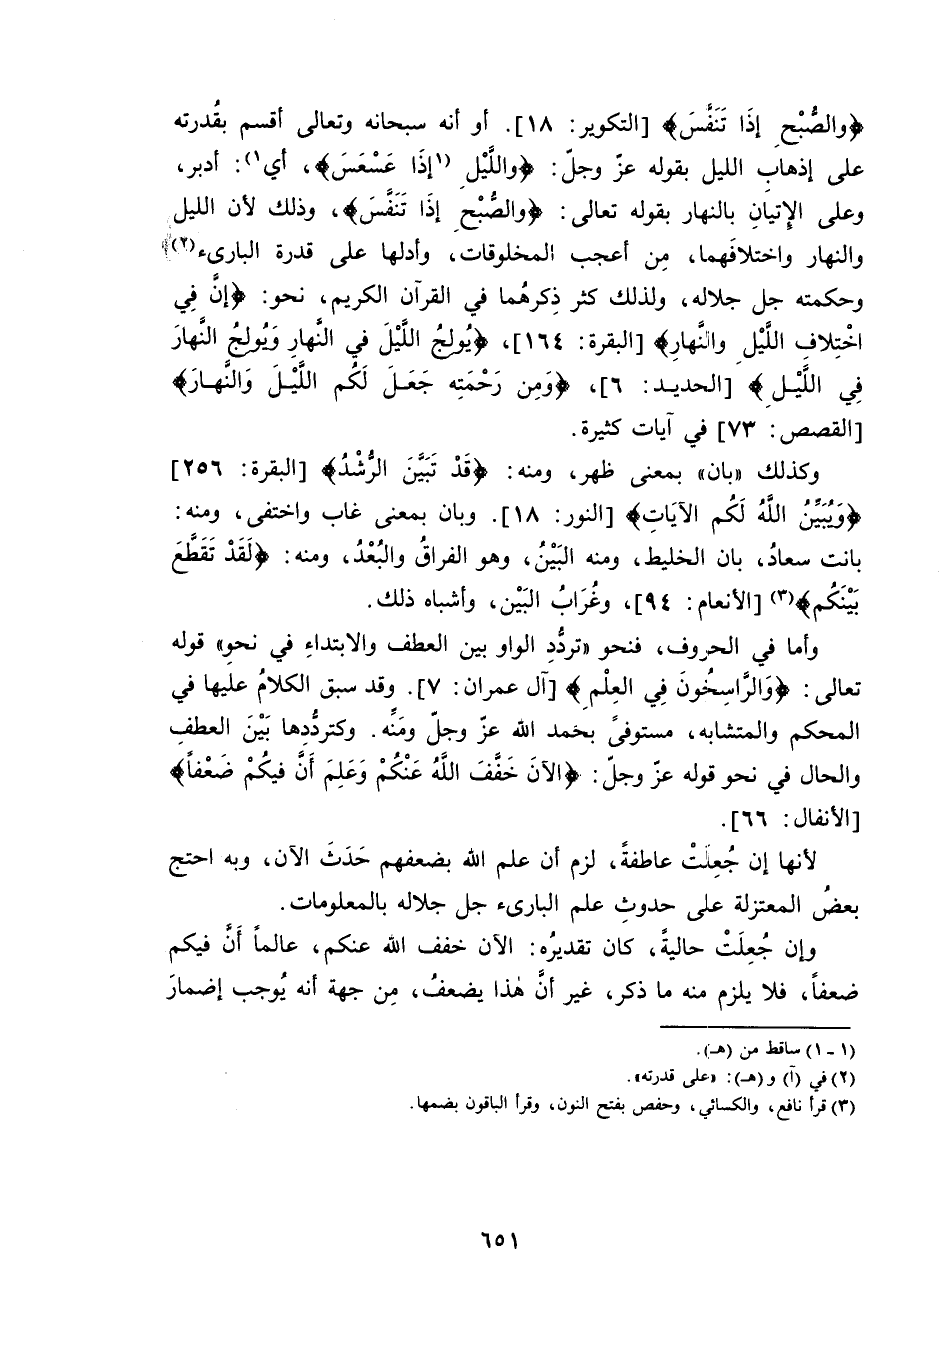 ﴿والصُّبْحِ إِذَا تَنَفَّسَ﴾ [التكوير: ١٨]. أو أنه سبحانه وتعالى أقسم بقُدرته
على إذهاب الليل بقوله عزّ وجلّ: ﴿واللَّيْلِ (١إِذَا عَسْعَسَ﴾، أي١): أدبر،
وعلى الإتيانِ بالنهار بقوله تعالى: ﴿والصُّبْحِ إِذَا تَنَفَّسَ﴾، وذلك لأن الليل
والنهار واختلافَهما، مِن أعجب المخلوقات، وأدلها على قدرة البارىء(٢)
وحكمته جل جلاله، ولذلك كثر ذِكرهُما في القرآن الكريم، نحو: ﴿إِنَّ فِي
اخْتِلافِ اللَّيْلِ والنَّهارِ﴾ [البقرة: ١٦٤]، ﴿يُولِجُ اللَّيْلَ في النَّهارِ وَيُولِجُ النَّهارَ
فِي اللَّيْلِ﴾ [الحديد: ٦]، ﴿وَمِن رَحْمَتِه جَعَلَ لَكُم اللَّيْلَ وَالنَّهارَ﴾
[القصص: ٧٣] في آيات كثيرة.
وكذلك «بان» بمعنى ظهر، ومنه: ﴿قَدْ تَبَيَّنَ الرُّشْدُ﴾ [البقرة: ٢٥٦]
﴿وَيُبَيِّنُ اللَّهُ لَكُم الآيَاتِ﴾ [النور: ١٨]. وبان بمعنى غاب واختفى، ومنه:
بانت سعادُ، بان الخليط، ومنه البَيْنُ، وهو الفراقُ والبُعْدُ، ومنه: ﴿لَقَدْ تَقَطَّعَ
بَيْنَكُم﴾(٣) [الأنعام: ٩٤]، وغُرَابُ البَيْن، وأشباه ذلك.
وأما في الحروف، فنحو «تردُّدِ الواو بين العطف والابتداءِ في نحوِ» قوله
تعالى: ﴿وَالرَّاسِخُونَ فِي العِلْمِ﴾ [آل عمران: ٧]. وقد سبق الكلامُ عليها في
المحكم والمتشابه، مستوفىً بحمد الله عزّ وجلّ ومَنِّه. وكتردُّدِها بَيْنَ العطفِ
والحال في نحو قوله عزّ وجلّ: ﴿الآنَ خَفَّفَ اللَّهُ عَنْكُمْ وَعَلِمَ أَنَّ فيكُمْ ضَعْفاً﴾
[الأنفال: ٦٦].
لأنها إن جُعِلَتْ عاطفةً، لزم أن علم الله بضعفهم حَدَثَ الآن، وبه احتج
بعضُ المعتزلة على حدوثِ علم البارىء جل جلاله بالمعلومات.
وإن جُعِلَتْ حاليةً، كان تقديرُه: الآن خفف الله عنكم، عالماً أَنَّ فيكم
ضعفاً، فلا يلزم منه ما ذكر، غير أنَّ هٰذا يضعفُ، مِن جهة أنه يُوجب إضمارَ
(١ - ١) ساقط من (هـ).
(٢) في (آ) و(هـ): «على قدرته».
(٣) قرأ نافع، والكسائي، وحفص بفتح النون، وقرأ الباقون بضمها.
٦٥١